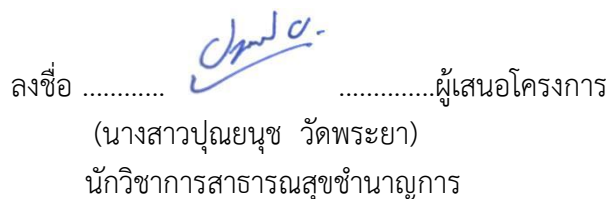 ลงชื่อ ............ ..............ผู้เสนอโครงการ
(นางสาวปุณยนุช วัดพระยา)
นักวิชาการสาธารณสุขชำนาญการ